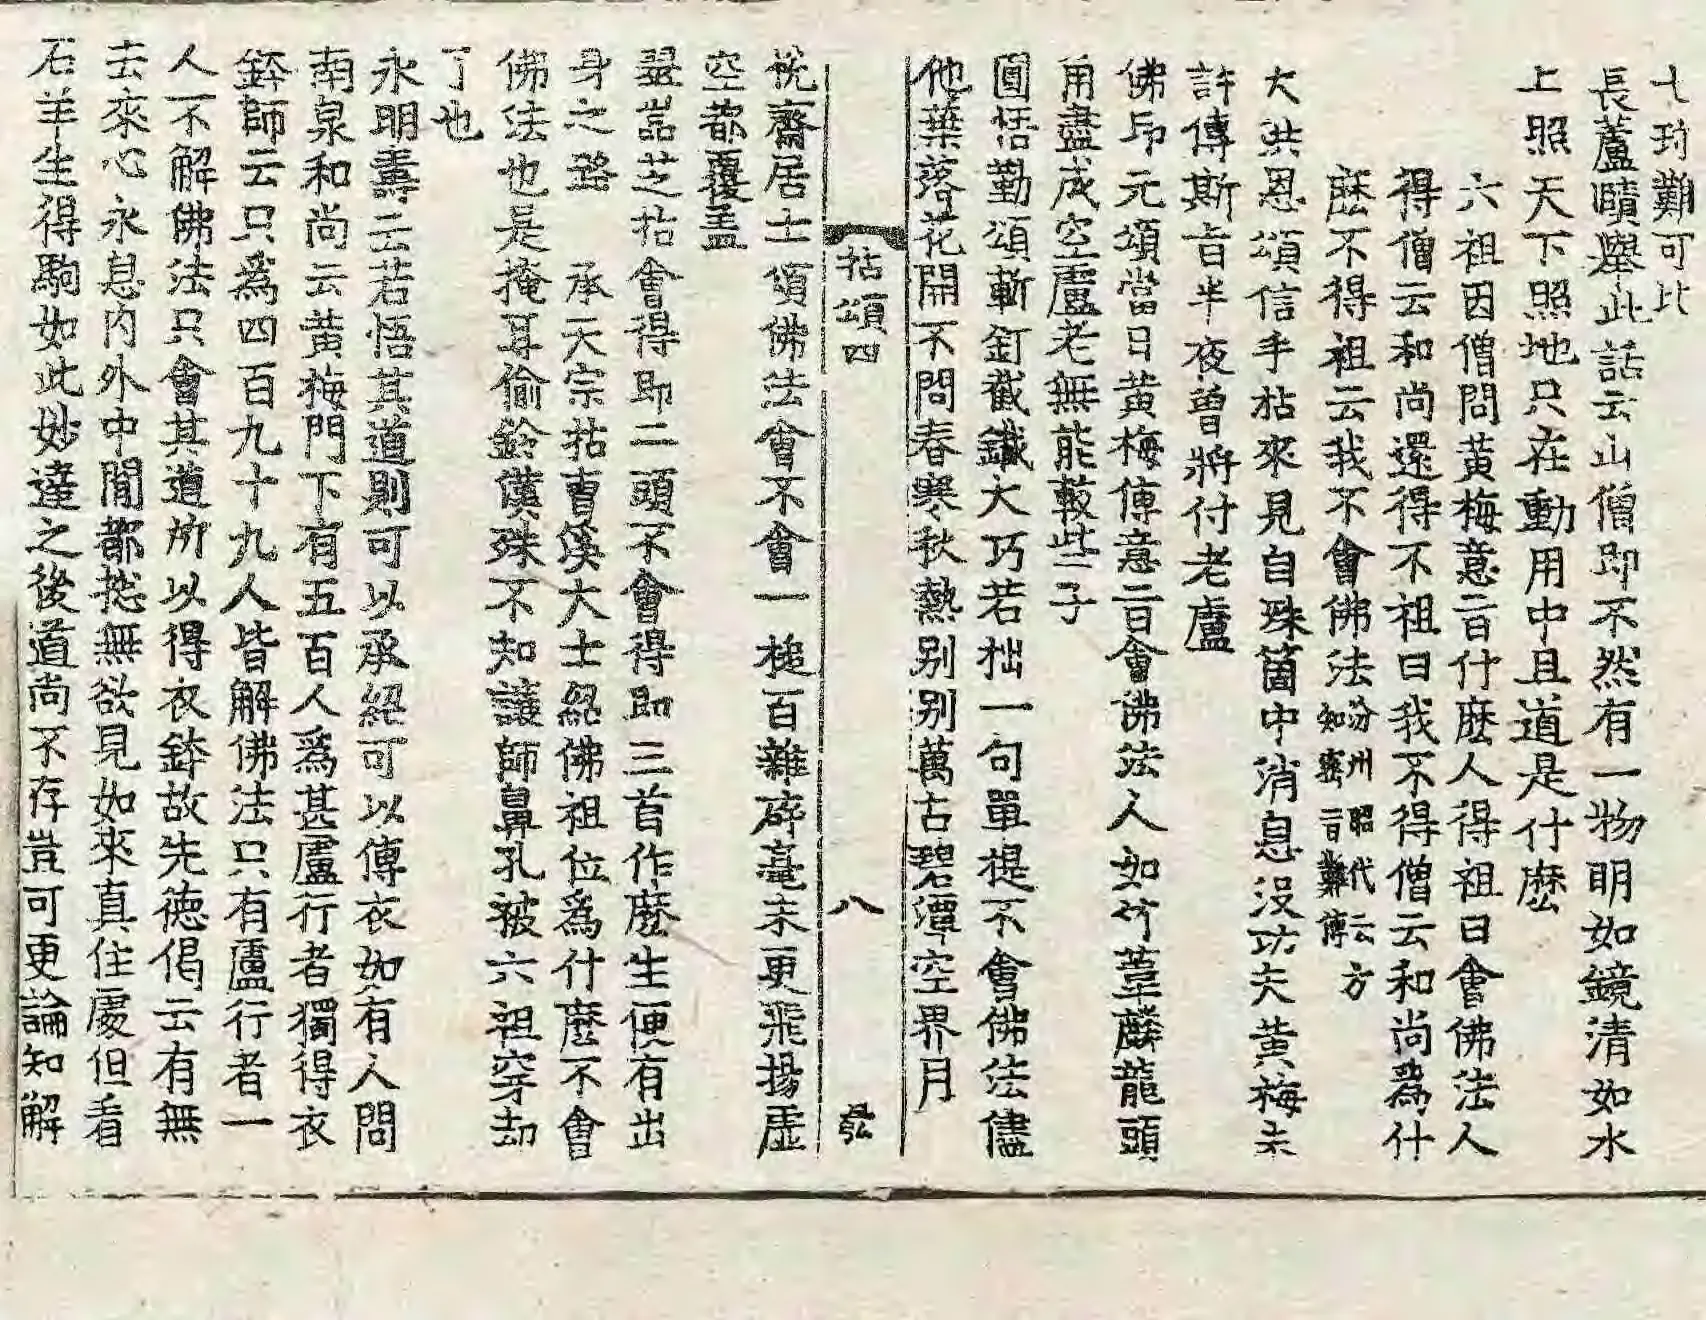 七珎難可比
長蘆賾舉此話云山僧即不然有一物明如鏡清如水
上照天下照地只在動用中且道是什麽
六祖因僧問黃梅意旨什麽人得祖曰會佛法人
得僧云和尚還得不祖曰我不得僧云和尚為什
麽不得祖云我不會佛法汾州昭代云方知密旨難傳
大洪恩頌信手拈來見自殊箇中消息沒功夫黃梅未
許傳斯旨半夜曾將付老盧
佛印元頌當日黃梅傳意旨會佛法人如竹葦麟龍頭
角盡成空盧老無能較些子
圓悟勤頌斬釘截鐵大巧若拙一句單提不會佛法儘
他葉落花開不問春寒秋熱別別萬古碧潭空界月
拈頌四 八
悅齋居士頌佛法會不會一槌百雜碎毫末更飛揚虛
空都覆盖
翠嵓芝拈會得即二頭不會得即三首作麽生便有出
身之路 承天宗拈曹溪大士紹佛祖位爲什麽不會
佛法也是掩耳偷鈴漢殊不知讓師鼻孔被六祖穿却
了也
永明壽云若悟其道則可以承紹可以傳衣如有人問
南泉和尚云黃梅門下有五百人爲甚盧行者獨得衣
鉢師云只爲四百九十九人皆解佛法只有盧行者一
人不解佛法只會其道所以得衣鉢故先德偈云有無
去來心永息内外中間都捴無欲見如來真住處但看
石羊生得駒如此妙達之後道尚不存豈可更論知解